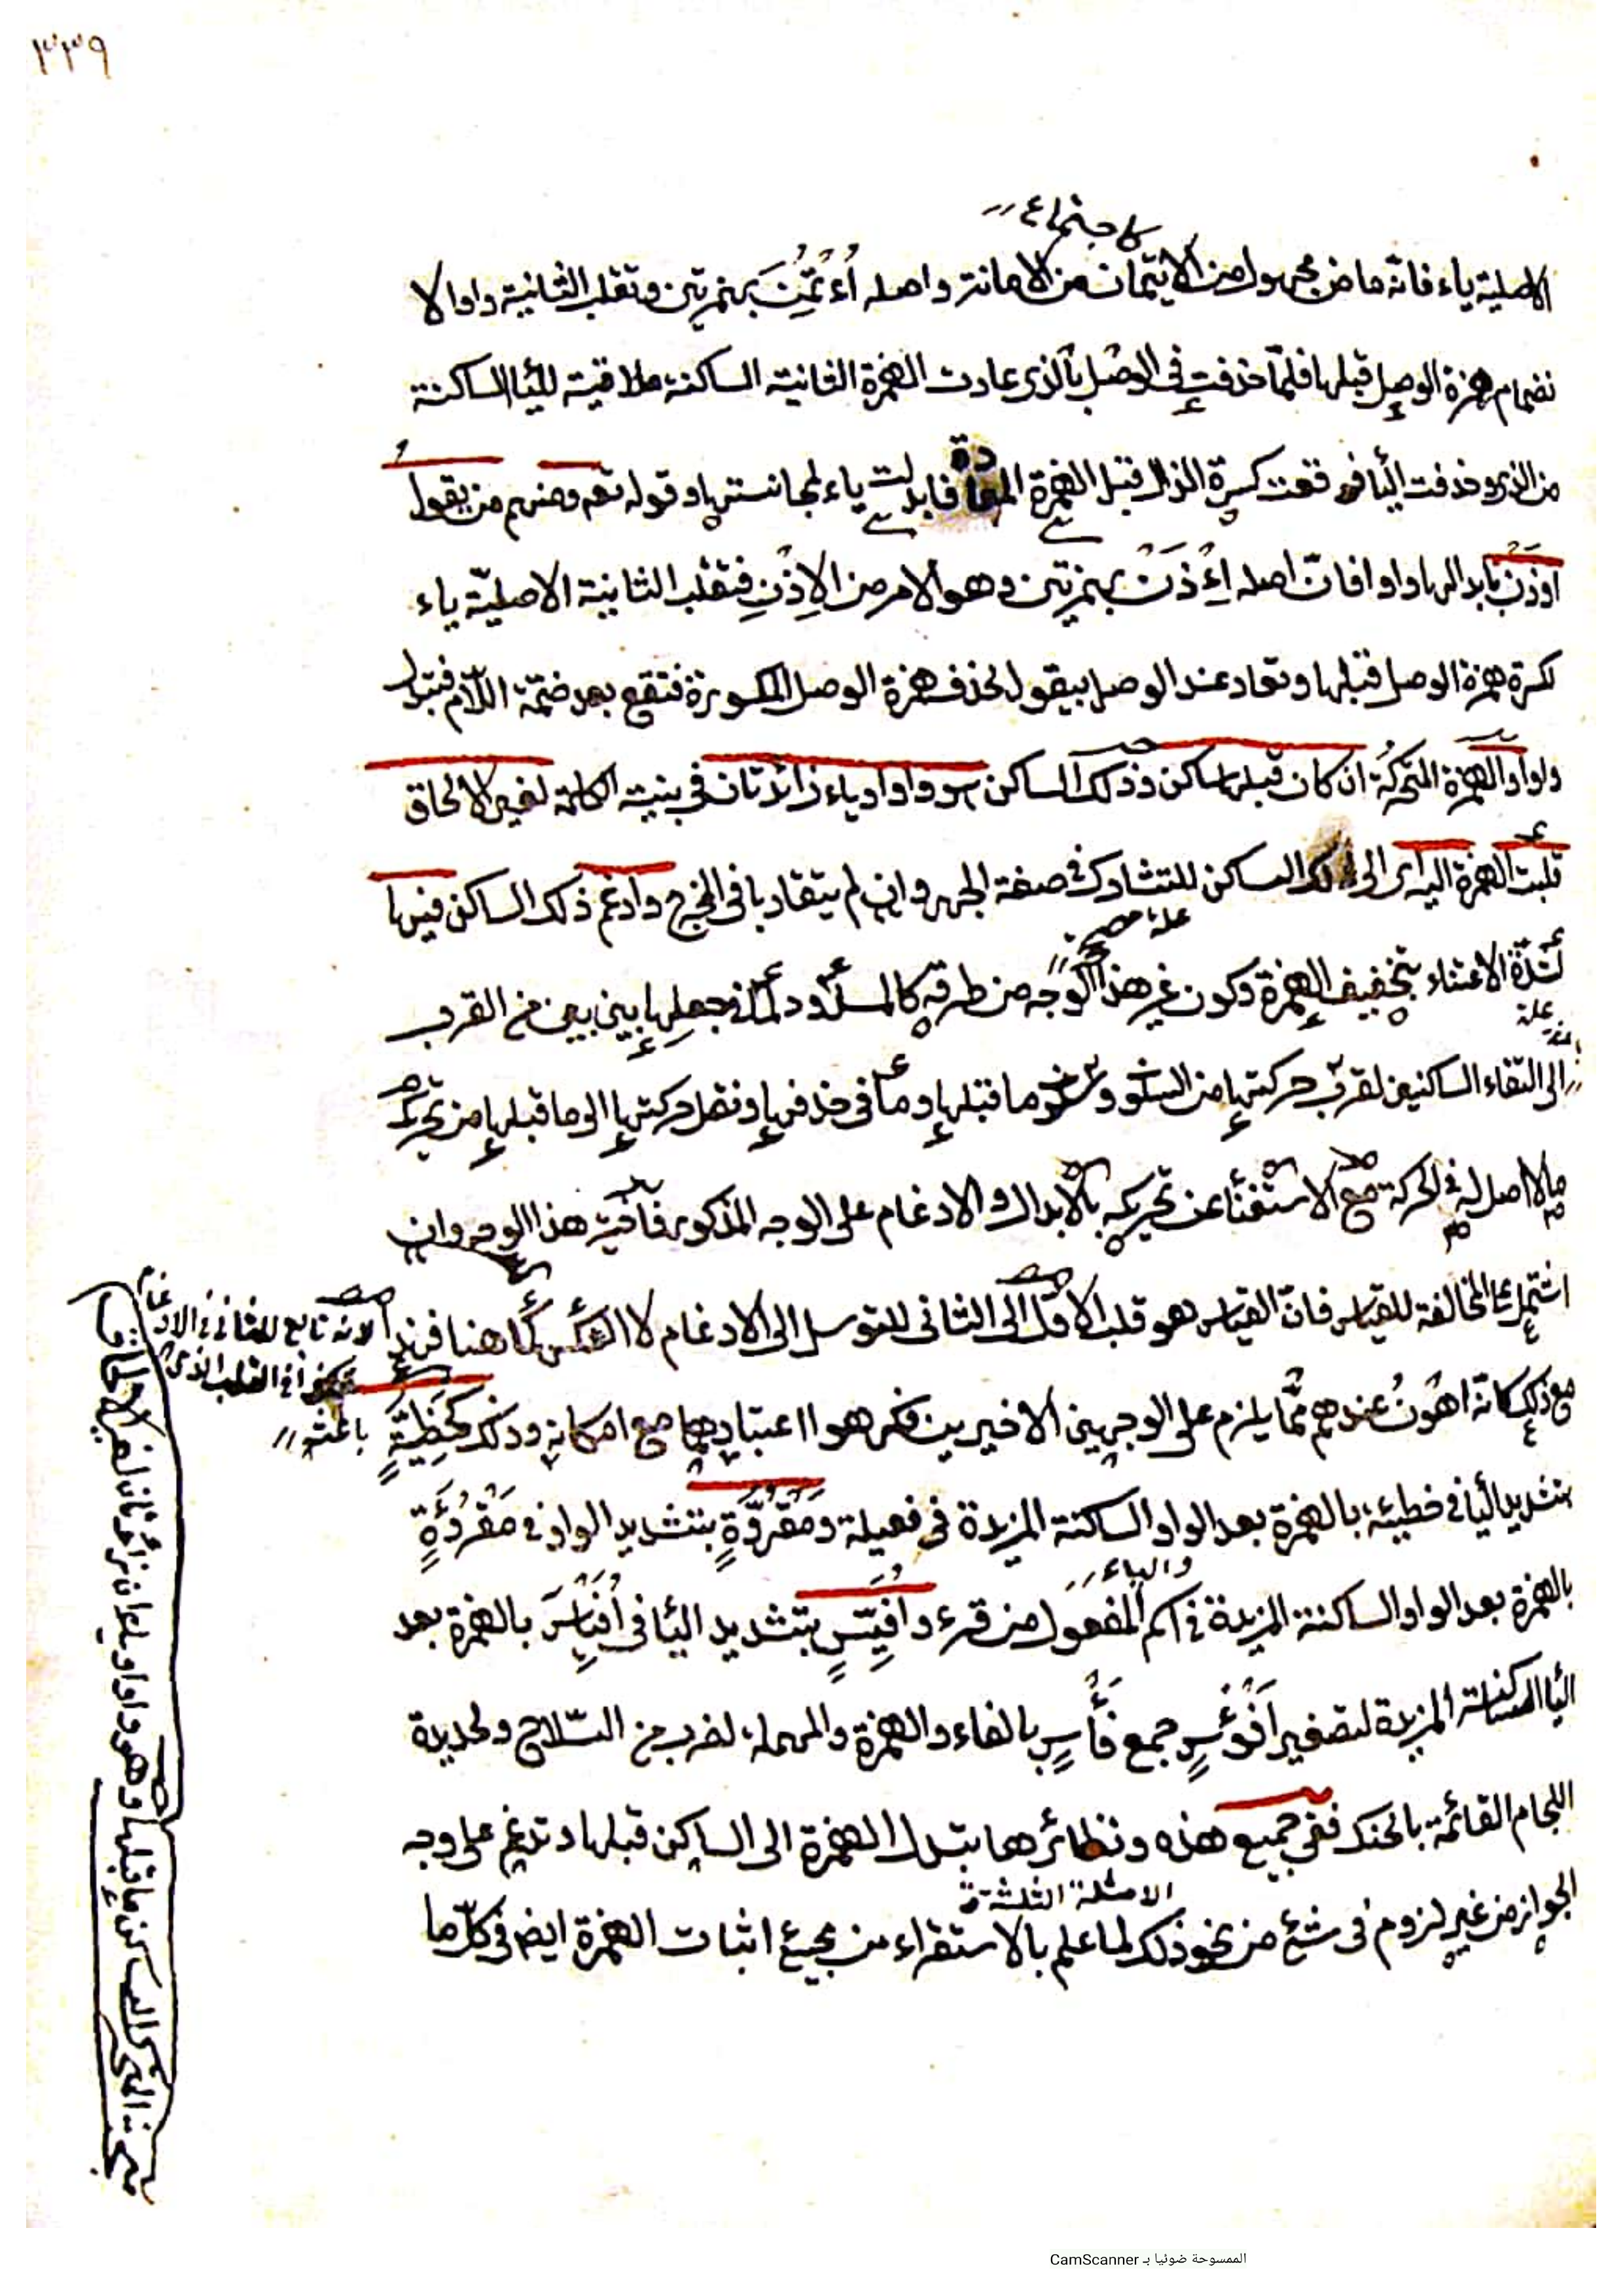 ٣٣٩
لاجتماع
الاصلية ياء فانّه ماض مجهول من الايتمان من الامانة واصله اُءْتُمِنَ بهمزتين وتقلب الثانية واوا لا
نضمام همزة الوصل قبلها فلمّا حذفت في الوصل بالذى عادت الهمزة الثانية الساكنة ملاقية لليا الساكنة
من الذى وحذفت اليا فوقعت كسرة الذال قبل الهمزة المعادة فابدلت ياء لمجانستها وقوله تعم ومنهم من يقول
اوذن بابدالها واوا فانّ اصله اِءْذَنْ بهمزتين وهو الامر من الاِذْنِ فتقلب الثانية الاصليّة ياء
لكسرة همزة الوصل قبلها وتعاد عند الوصل بيقول لحذف همزة الوصل المكسورة فتقع بعد ضمّة اللّام فتبدل
واوا والهمزة المتحركة ان كان قبلها ساكن وذلك الساكن هو واو او ياء زائدتان في بنية الكلمة لغير الالحاق
قلبت الهمزة اليه اى الى ذلك الساكن للتشارك في صفة الجهر وان لم يتقاربا في المخرج وادغم ذلك الساكن فيها
لشدّة الاعتناء بتخفيف الهمزة وكون غير هذا الوجه من طرقه كالمسدود لما في جعلها بين بين من القرب
علة مصححة
علة
الى التقاء الساكنين لقرب حركتها من السكون وسكون ما قبلها وما في حذفها ونقل حركتها الى ما قبلها من تحريك
ما لا اصل له في الحركة مع الاستغنا عن تحريكه بالابدال والادغام على الوجه المذكور فاختير هذا الوجه وان
اشتمل على المخالفة للقياس فانّ القياس هو قلب الاوّل الى الثانى للتوسل الى الادغام لا العكس كما هنا
لانه تابع للثانى في الادغام
مع ذلك كانّه اهون عندهم ممّا يلزم على الوجهين الاخيرين مع امكانه وذلك كخَطِيَّةٍ
باعثه
بتشديد اليا في خطيئة بالهمزة بعد الواو الساكنة المزيدة في فعيلة ومَقْرُوَّةٍ بتشديد الواو في مَقْرُوءَةٍ
والياء
بالهمزة بعد الواو الساكنة المزيدة في اسم المفعول من قرء وافَيِّسٍ بتشديد اليا في اُفَيْئِسَ بالهمزة بعد
اليا الساكنة المزيدة لتصغير اَفْؤُسٍ جمع فَأْسٍ بالفاء والهمزة والمهملة لضرب من السّلاح ولحديدة
اللجام القائمة بالحنك ففى جميع هذه ونظائرها بتبدل الهمزة الى الساكن قبلها وتدغم على وجه
الامثلة الثلثة
الجواز من غير لزوم في شئ من نحو ذلك لما علم بالاستقراء من مجيئ اثبات الهمزة ايض في كلّ ما
مبحث المتحرك الساكن ما قبلها وهو واو او ياء زائدتان لغير الالحاق
الممسوحة ضوئيا بـ CamScanner